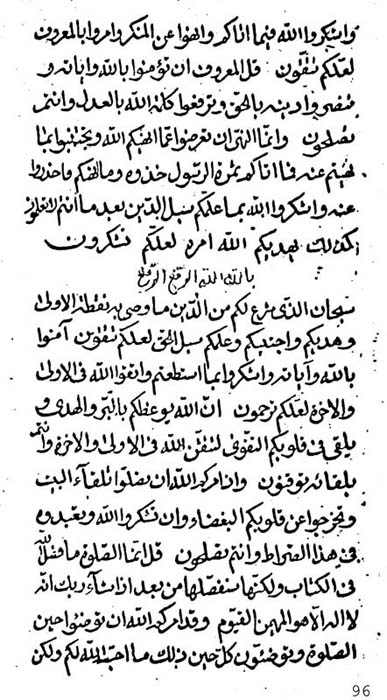 واشكروا الله فيما اتاكم وانهوا عن المنكر وامروا بالمعروف
لعلكم تتقون قل المعروف ان تؤمنوا بالله واياته و
تنصروا دينه بالحق وترفعوا كلمة الله بالعدل وانتم
تصلحون وانما النهى ان تعرضوا عما انهيكم الله وتجتنبوا عما
نهيتم عنه فما اتاكم ثمرة الرسول خذوه وما نهيكم فاحذروا
عنه واشكروا الله بما علمكم سبل الدين بعد ما انتم لا تعلمون
كذلك يهديكم الله امره لعلكم تشكرون
بالله الله الرفع الرفيع
سبحان الذى شرع لكم من الدين ما وصى به نقطة الاولى
وهديكم واجتبيكم وعلمكم سبل الحق لعلكم تتقون آمنوا
بالله وآياته واشكروا بما استطعتم واتقوا الله فى الاولى
والآخرة لعلكم ترحمون ان الله يوعظكم بالبر والهدى و
يلقى فى قلوبكم التقوى لتتقن الله فى الاولى والآخرة وانتم
بلقائه توقنون وانا امركم الله ان تصلوا تلقاء البيت
وتخرجوا عن قلوبكم البغضاء وان تشكروا الله وتعبدوه
فى هذا الصراط وانتم تصلحون قل انما الصلوة ما فصل الله
فى الكتاب ولكنا سنفصلها من بعد اذا شاء ربك انه
لا اله الا هو المهيمن القيوم وقد امركم الله ان توضئوا حين
الصلوة وتوضئون كل حين ذلك ما احب الله لكم ولكن
96